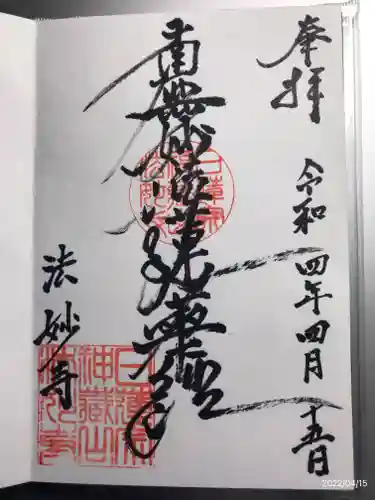 奉拝
令和四年四月十五日
南無妙法蓮華経
法妙寺
2022/04/15